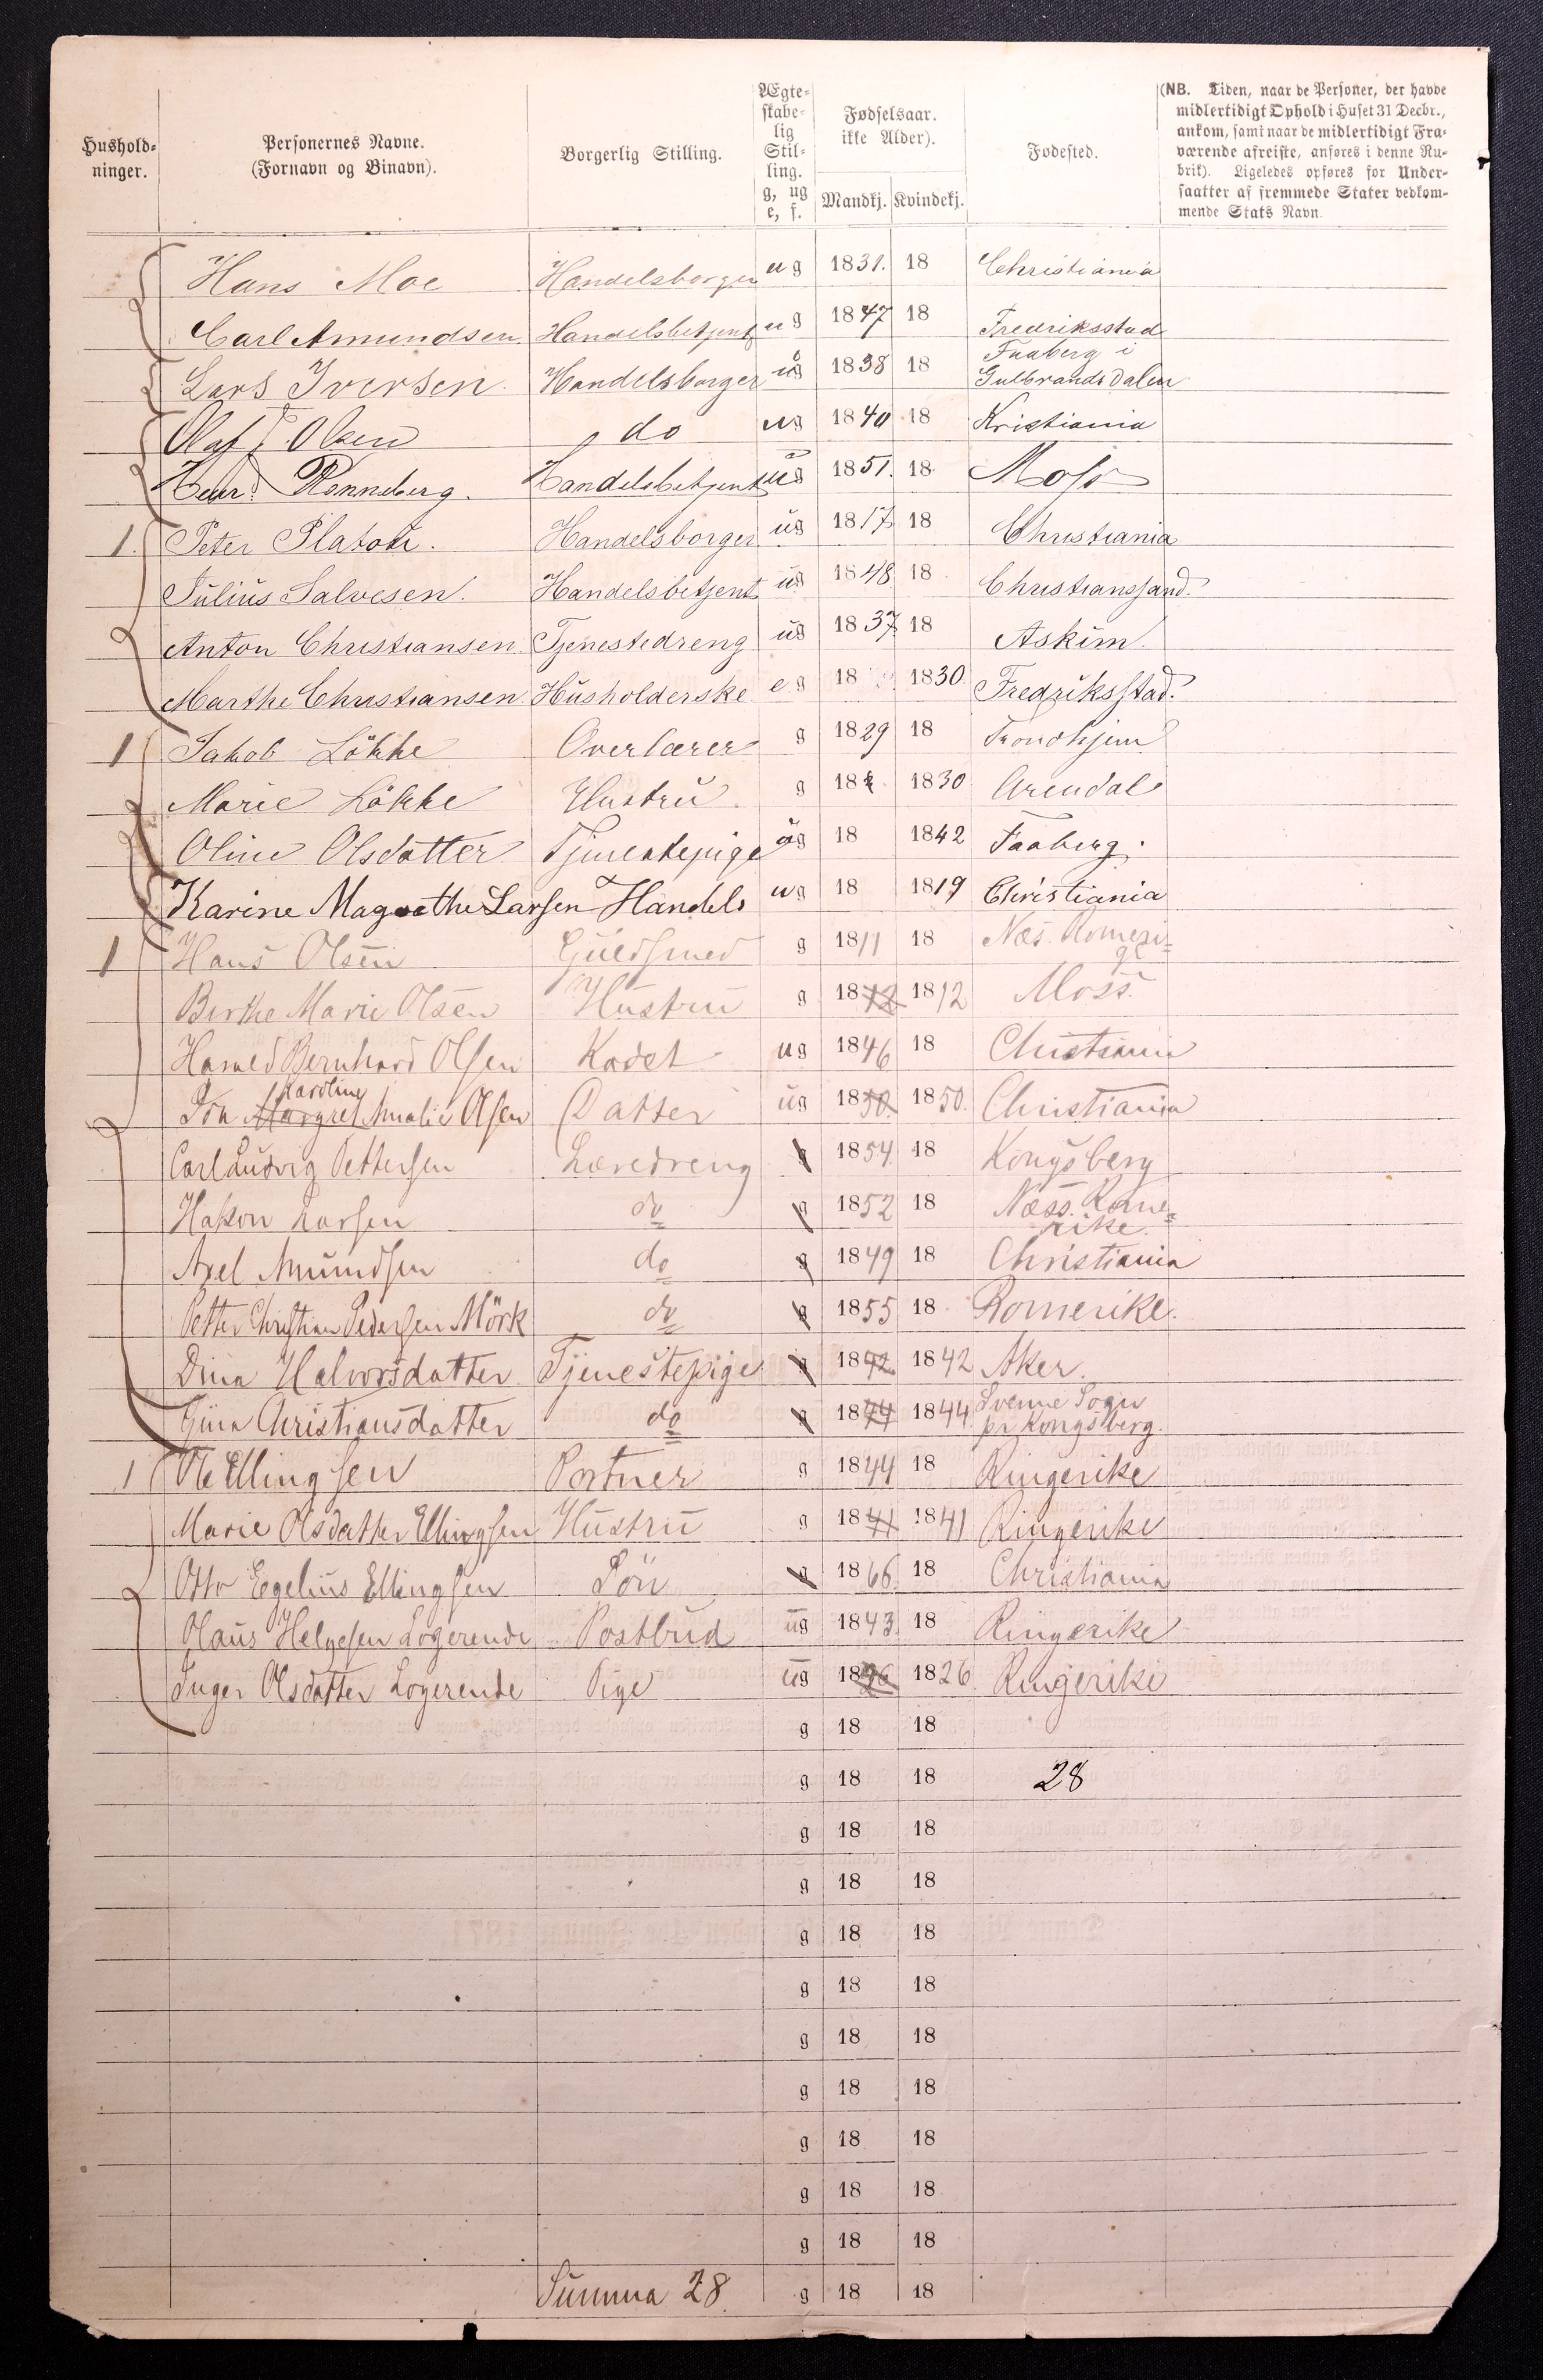 Hushold-
ninger.
Personernes Navne.
(Fornavn og Binavn).
Borgerlig Stilling.
Ægte-
skabe-
lig
Stil-
ling.
g, ug
e, f.
Fødselsaar.
ikke Alder).
Mandkj. Kvindekj.
Fødested.
(NB. Tiden, naar de Personer, der havde
midlertidigt Ophold i Huset 31 Decbr.,
ankom, samt naar de midlertidigt Fra-
værende afreiste, anføres i denne Ru-
brik). Ligeledes opføres for Under-
saatter af fremmede Stater vedkom-
mende Stats Navn.
Hans Moe Handelsborger ug 1831. 18 Christiania
Carl Amundsen Handelsbetjent ug 1847 18 Fredriksstad
Lars Iversen Handelsborger ug 1838 18 Faaberg i
Gulbrandsdalen
Olaf J. Olsen do ug 1840 18 Kristiania
Rønneberg. Handelsbetjent ug 1851. 18 Moss
1. Peter Platou. Handelsborger ug 1817 18 Christiania
Julius Salvesen. Handelsbetjent ug 1848 18 Christianssand.
Anton Christiansen Tjenestedreng ug 1837 18 Askim.
Marthe Christiansen Husholderske e g 18 1830 Fredriksstad.
1 Jakob Løkke Overlærer g 1829 18 Trondhjem
Marie Løkke Hustru g 18 1830 Arendal
Oline Olsdatter Tjenestepige ug 18 1842 Faaberg.
Karine Magrethe Larsen Handels ug 18 1819 Christiania
1 Hans Olsen Guldsmed g 1811 18 Næs. Romeri=
ge
Berthe Marie Olsen Hustru g 1812 1812 Moss.
Harald Bernhard Olsen Kadet ug 1846 18 Christiania
Karoline
Margret Amalie Olsen Datter ug 1850. 1850. Christiania
Carl Ludvig Pettersen Læredreng g 1854 18 Kongsberg
Hakon Larsen do g 1852 18 Næss. Rome=
rike.
Axel Amundsen do g 1849 18 Christiania
Petter Christian Pedersen Mörk do g 1855 18 Romerike.
Dina Halvorsdatter Tjenestepige g 1842 1842 Aker.
Gina Christiansdatter do g 1844 1844 Svenne Sogn
pr Kongsberg.
1 Ole Ellingsen Portner g 1844 18 Ringerike
Marie Olsdatter Ellingsen Hustru g 1841 1841 Ringerike
Otto Egelius Ellingsen Sön g 1866. 18 Christiania
Olaus Helgesen Logerende Postbud ug 1843. 18 Ringerike
Inger Olsdatter Logerende Pige ug 1826 1826 Ringerike
g 18 18
g 18 18 28
g 18 18
g 18 18
g 18 18
g 18 18
g 18 18
g 18 18
g 18 18
g 18 18
g 18 18
Summa 28. g 18 18